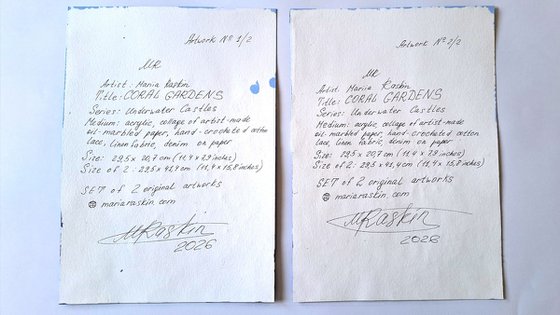 Artwork № 1/2
MR
Artist: Mariia Raskin
Title: CORAL GARDENS
Series: Underwater Castles
Medium: acrylic, collage of artist-made
oil-marbled paper, hand-crocheted cotton
lace, linen fabric, denim on paper
Size: 29,5 x 20,7 cm (11,4 x 7,9 inches)
Size of 2: 29,5 x 41,4 cm (11,4 x 15,8 inches)
SET of 2 original artworks
mariaraskin.com
MRaskin
2026
Artwork № 2/2
MR
Artist: Mariia Raskin
Title: CORAL GARDENS
Series: Underwater Castles
Medium: acrylic, collage of artist-made
oil-marbled paper, hand-crocheted cotton
lace, linen fabric, denim on paper
Size: 29,5 x 20,7 cm (11,4 x 7,9 inches)
Size of 2: 29,5 x 41,4 cm (11,4 x 15,8 inches)
SET of 2 original artworks
mariaraskin.com
MRaskin
2026